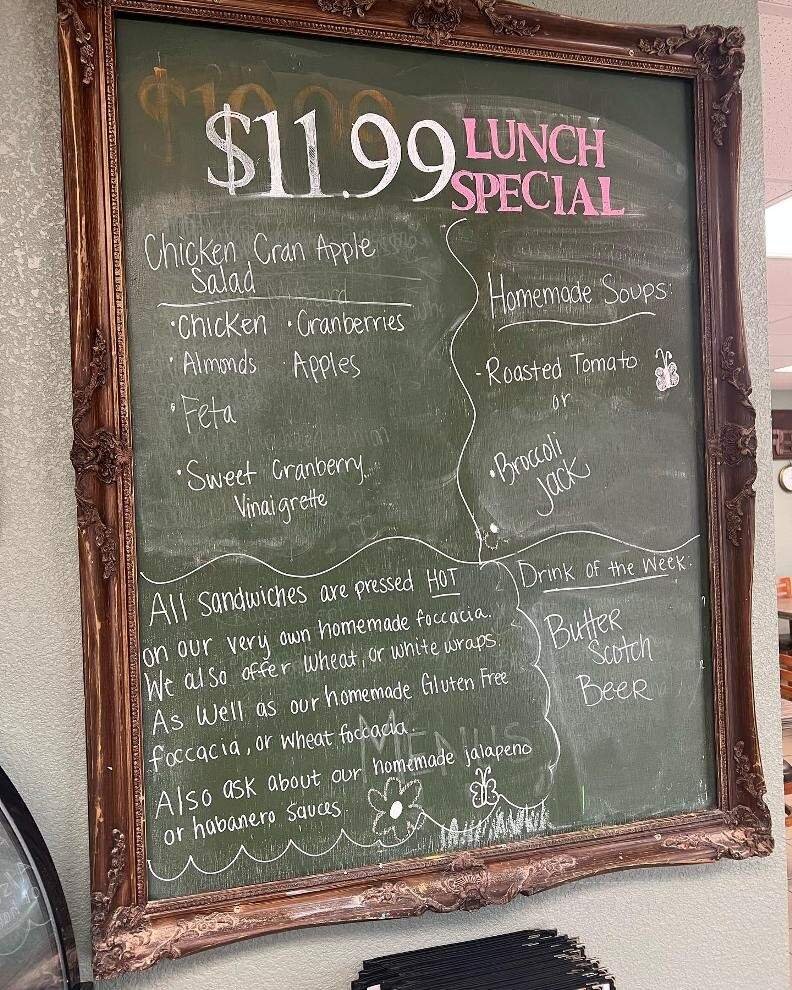 $11.99 LUNCH
SPECIAL
Chicken Cran Apple
Salad
• Chicken • Cranberries
• Almonds • Apples
• Feta
• Sweet Cranberry
Vinaigrette
Homemade Soups:
- Roasted Tomato
or
• Broccoli
Jack
All Sandwiches are pressed HOT
on our very own homemade foccacia.
We also offer wheat, or white wraps.
As Well as our homemade Gluten Free
foccacia, or wheat foccacia.
Also ask about our homemade jalapeno
or habanero sauces
MENUS
Drink of the Week:
Butter
Scotch
Beer